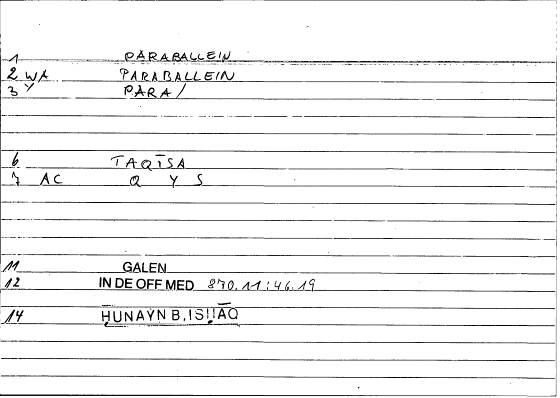 1 PARABALLEIN
2 WA PARABALLEIN
3 Y PARA/
6 TAQĪSA
7 AC Q Y S
11 GALEN
12 IN DE OFF MED 870.11:46.19
14 ḤUNAYN B. ISḤĀQ